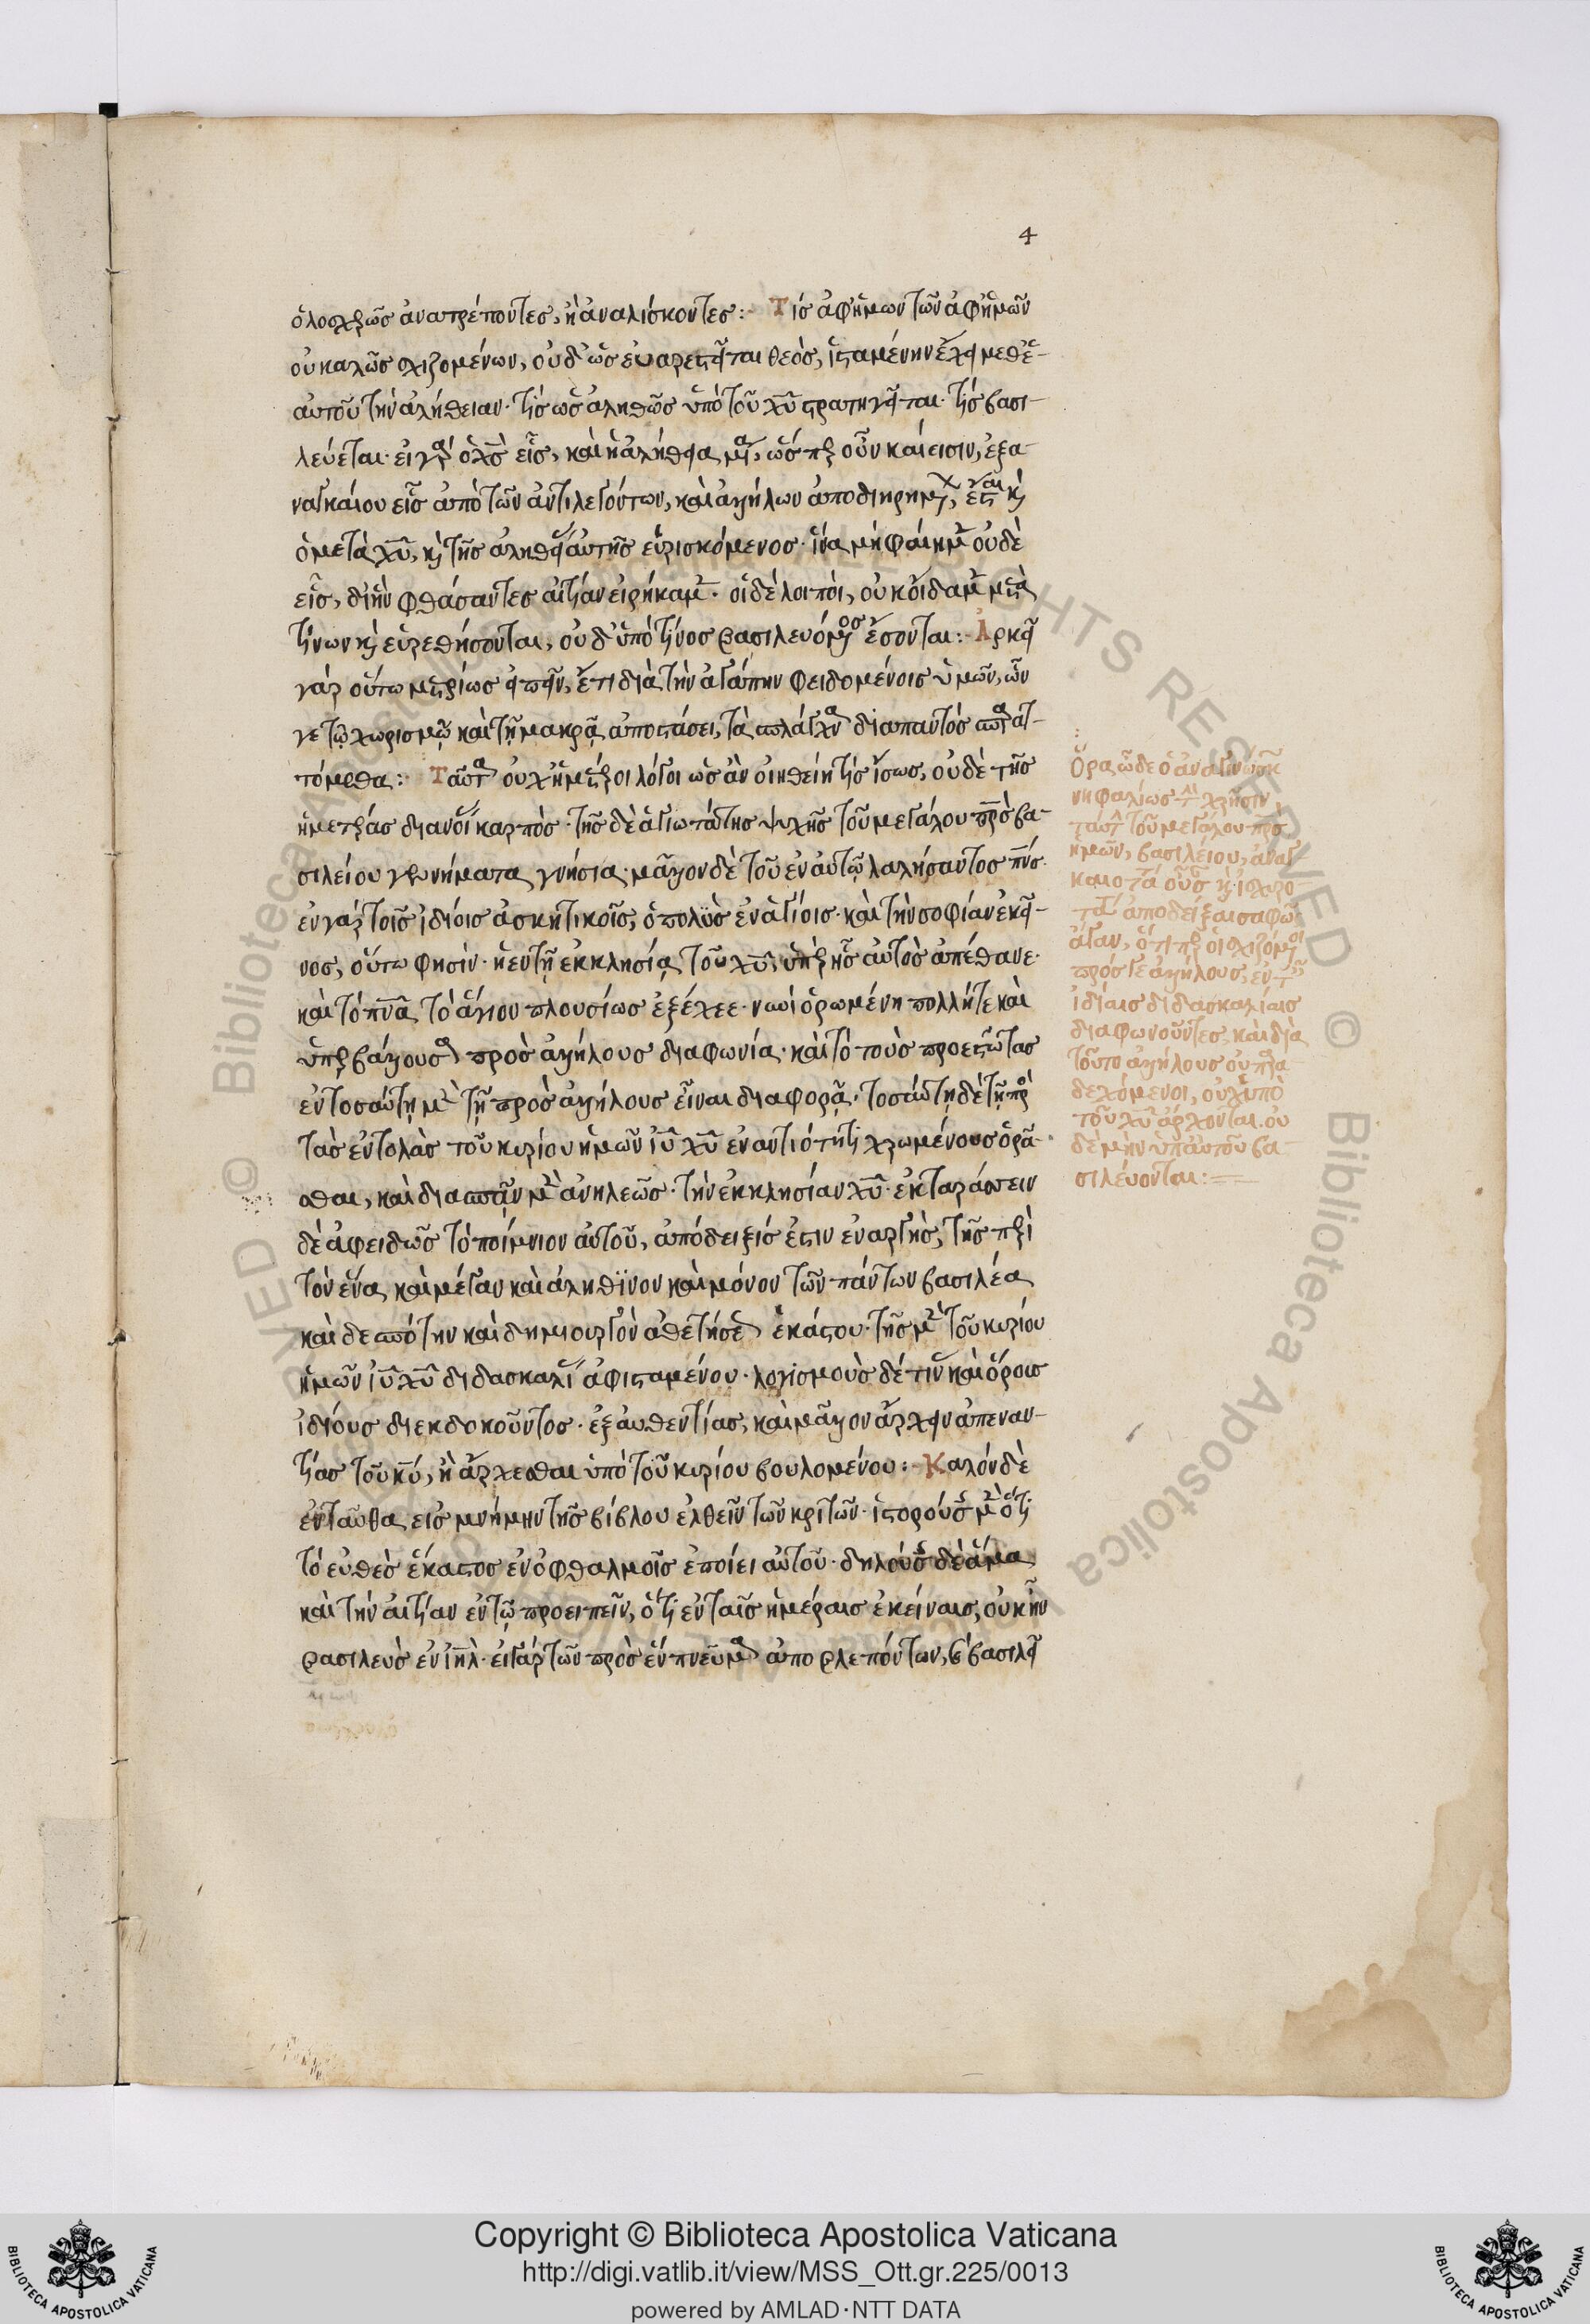 4
ὁλοσχερῶσ ἀνατρέποντεσ, ἢ ἀναλίσκοντεσ:· Τίσ ἀφ' ἡμων τῶν ἀφ' ἡμῶν
οὐ καλῶσ σχιζομένων, οὐδ' ὡσ εὐαρεστεῖται θεὸσ, ἱσταμένην ἔχει μεθ' ἑ-
αυτοῦ τὴν ἀλήθειαν· τίσ ὡσ ἀληθῶσ ὑπὸ τοῦ χῦ στρατηγεῖται· τίσ βασι-
λεύεται· εἰ γὰρ ὁ χσ εἷσ, καὶ ἡ ἀλήθεια μία, ὥσπερ οὖν καί εισιν, ἐξα-
ναγκαίου εἷσ ἀπὸ τῶν ἀντιλεγόντων, καὶ ἀλλήλων ἀποδιῃρημένων, ἔσται κ(αὶ)
ὁ μετὰ χῦ, κ(αὶ) τῆσ ἀληθείασ αὐτῆσ εὑρισκόμενοσ· ἵνα μὴ φαίημεν οὐδὲ
εἷσ, δι' ἣν φθάσαντεσ αἰτίαν εἰρήκαμεν· οἱ δὲ λοιποὶ, οὐκ οἴδαμεν μετὰ
τίνων κ(αὶ) εὑρεθήσονται, οὐδ' ὑπὸ τίνοσ βασιλευόμενοσ ἔσονται:· Ἀρκεῖ
γάρ οὕτω μετρίωσ εἰπεῖν, ἔτι διὰ τὴν ἀγάπην φειδομένοισ ὑμῶν, ὧν
γε τῷ χωρισμῷ καὶ τῇ μακρᾷ ἀποστάσει, τὰ σπλάγχνα διαπαντόσ σπαρατ-
τόμεθα:· Ταῦτα οὐχ' ἡμέτεροι λόγοι ὡσ ἂν οἰηθείη τίσ ἴσωσ, οὐδὲ τῆσ
ἡμετέρασ διανοίασ καρπὸσ· τῆσ δὲ ἁγιωτάτησ ψυχῆσ τοῦ μεγάλου πρσ βα-
σιλείου γεννήματα γνήσια· μᾶλλον δὲ τοῦ ἐν αὐτῷ λαλήσαντοσ πνσ·
ἐν γὰρ τοῖσ ἰδίοισ ἀσκητικοῖσ, ὁ πολὺσ ἐν ἁγίοισ· καὶ τὴν σοφίαν ἐκεῖ-
νοσ, οὕτω φησὶν· ἡ ἐν τῇ ἐκκλησίᾳ τοῦ χῦ, ὑπὲρ ἧσ αὐτὸσ ἀπέθανε·
καὶ τὸ πνα τὸ ἅγιον πλουσίωσ ἐξέχεε· νυνὶ ὁρωμένη πολλή τε καὶ
ὑπερβάλλουσα πρὸσ ἀλλήλουσ διαφωνία· καὶ τὸ τοὺσ προεστῶτασ
ἐν τοσαύτῃ μὲν τῇ πρὸσ ἀλλήλουσ εἶναι διαφορᾷ· τοσαύτῃ δὲ τῇ πρὸσ
τὰσ ἐντολὰσ τοῦ κυρίου ἡμῶν ἰῦ χῦ ἐναντιότητι χρωμένουσ ὁρᾶ-
σθαι, καὶ διασπᾶν μὲν ἀνηλεῶσ· τὴν ἐκκλησίαν χῦ· ἐκταράσσειν
δὲ ἀφειδῶσ τὸ ποίμνιον αὐτοῦ, ἀπόδειξίσ ἐστιν ἐναργὴσ, τῆσ περὶ
τὸν ἕνα καὶ μέγαν καὶ ἀληθϊνον καὶ μόνον τῶν πάντων βασιλέα
καὶ δεσπότην καὶ δημιουργὸν ἀθετήσεωσ ἑκάστου· τῆσ μὲν τοῦ κυρίου
ἡμῶν ἰῦ χῦ διδασκαλίασ ἀφισταμένου· λογισμοὺσ δέ τινασ καὶ ὅρουσ
ἰδίουσ διεκδικοῦντοσ· ἐξ αὐθεντίασ, καὶ μᾶλλον ἄρχειν ἀπεναν-
τίασ τοῦ κυ, ἢ ἄρχεσθαι ὑπὸ τοῦ κυρίου βουλομένου:· Καλόν δὲ
ἐνταῦθα εἰσ μνήμην τῆσ βίβλου ἐλθεῖν τῶν κριτῶν· ἱστορούσησ μὲν ὅτι
τὸ εὐθὲσ ἕκαστοσ ἐν ὀφθαλμοῖσ ἐποίει αὐτοῦ· δηλούσησ δὲ ἅμα
καὶ τὴν αἰτίαν ἐν τῷ προειπεῖν, ὅτι ἐν ταῖσ ἡμέραισ ἐκείναισ, οὐκ ἦν
βασιλεὺσ ἐν ἰηλ· εἰ γάρ τῶν πρὸσ ἓν πνεῦμα ἀποβλεπόντων, κ(αὶ) βασιλεῖ
Ὅρα ὧδε ὁ ἀναγινώσκων
νηφαλίωσ τὴν χρῆσιν
ταύτην τοῦ μεγάλου πρσ
ἡμῶν, βασιλείου, ἀναγ-
καιοτάτην οὖσαν κ(αὶ) ἰσχυρο-
τάτην ἀποδείξαι σαφῶσ
ἄγαν, ὅτιπερ οἱ σχιζόμενοι
πρόσ γε ἀλλήλουσ, ἐν ταῖσ
ἰδίαισ διδασκαλίαισ
διαφωνοῦντεσ, καὶ διὰ
τοῦτο ἀλλήλουσ οὐ παρα-
δεχόμενοι, οὐχ' ὑπὸ
τοῦ χῦ ἄρχονται. οὐ
δὲ μὴν ὑπ' αὐτοῦ βα-
σιλέυονται:
Copyright © Biblioteca Apostolica Vaticana
http://digi.vatlib.it/view/MSS_Ott.gr.225/0013
powered by AMLAD·NTT DATA
BIBLIOTECA APOSTOLICA VATICANA
BIBLIOTECA APOSTOLICA VATICANA